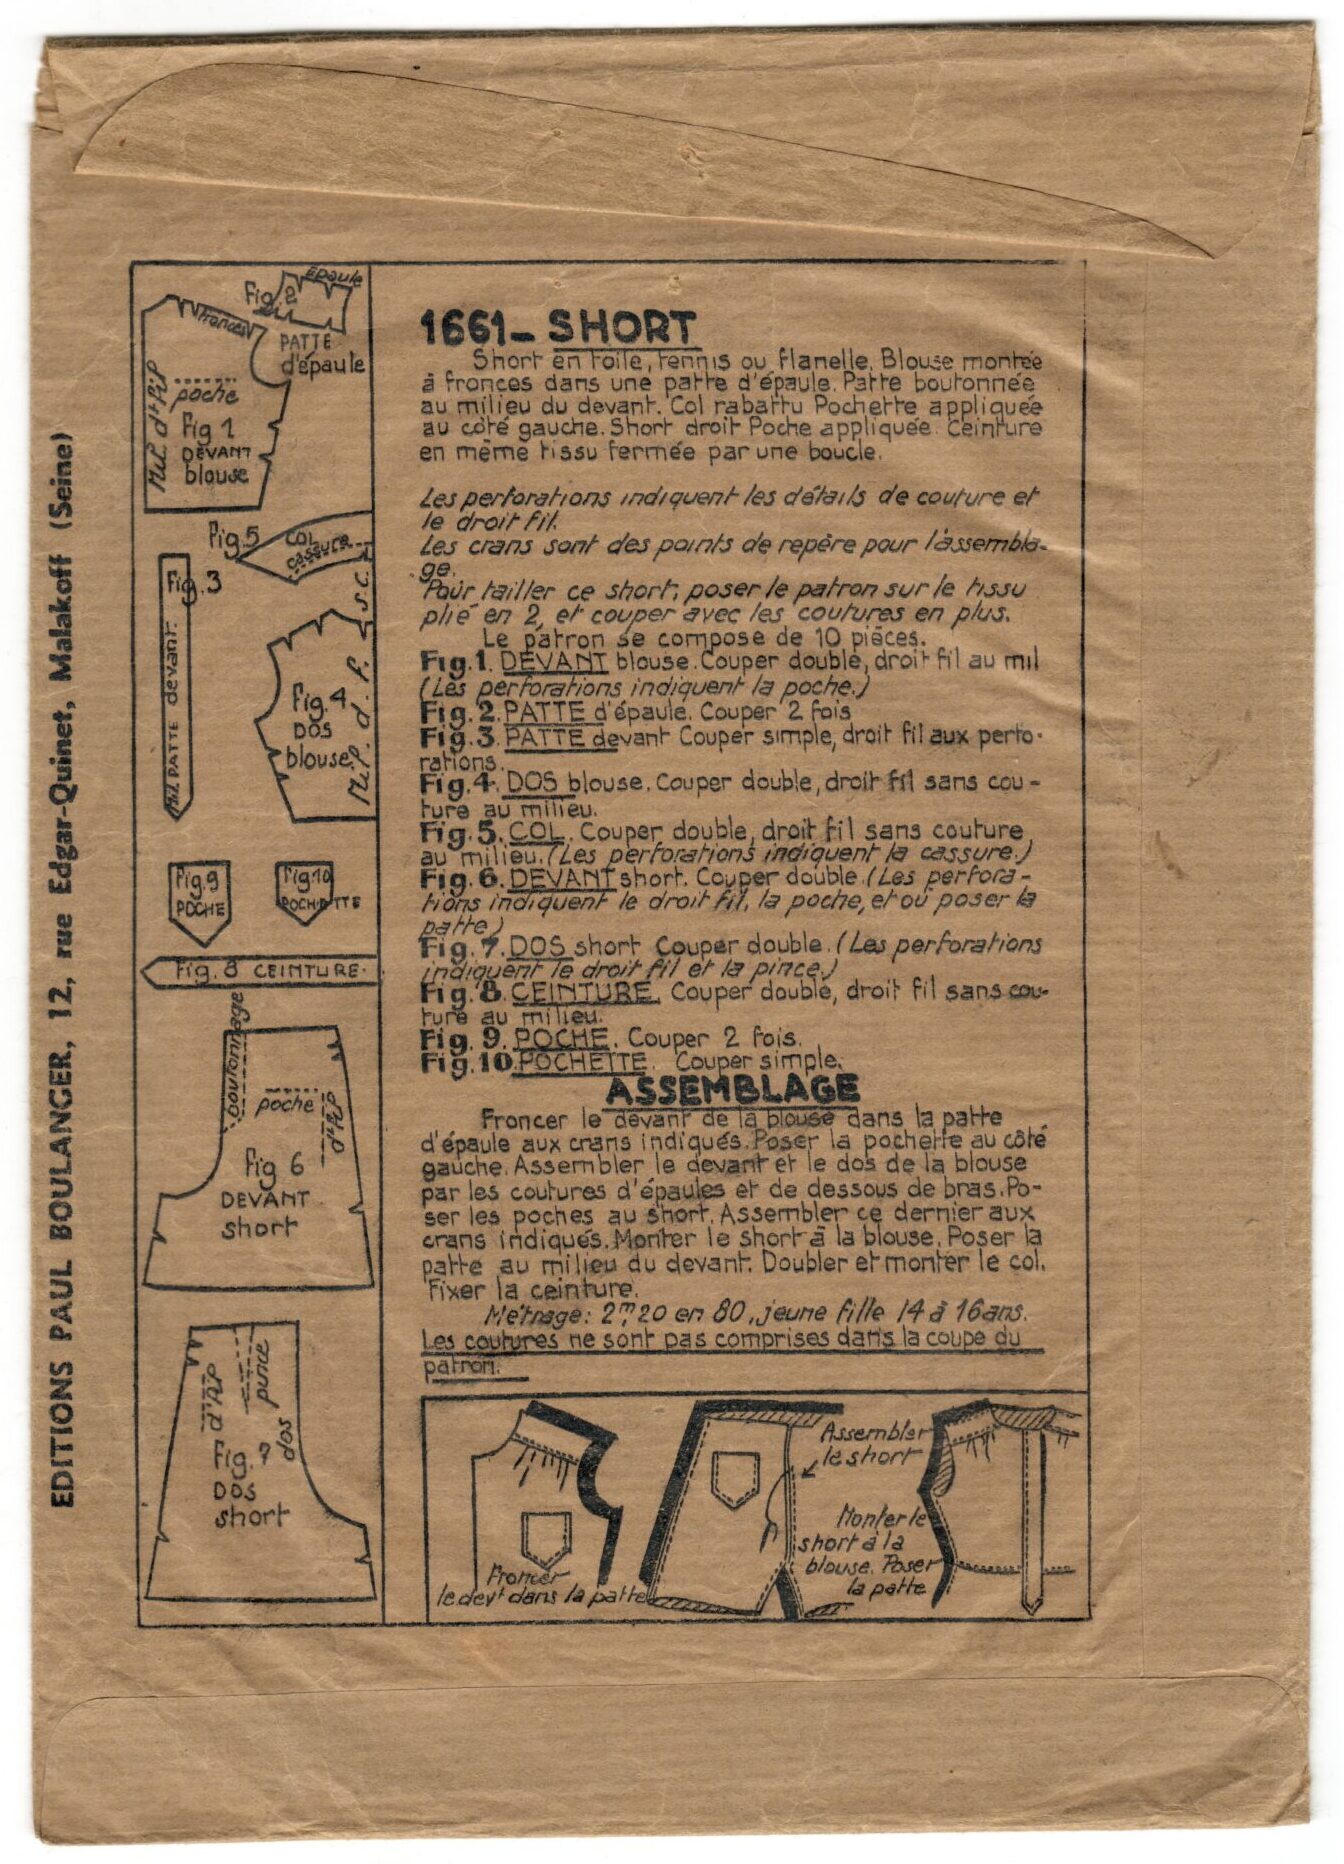 EDITIONS PAUL BOULANGER, 12, rue Edgar-Quinet, Malakoff (Seine)
épaule
Fig 2
fronces
PATTE
d'épaule
Mil d.fil
poche
Fig 1
DEVANT
blouse
Fig.5
COL
cassure
s.c.
Fig.3
Mil PATTE devant.
Fig.4
DOS
blouse.
Mil. d. f.
Fig.9
POCHE
Fig10
POCHETTE
Fig. 8 CEINTURE.
boutonnage
poche
d.fil
Fig 6
DEVANT
short
d.fil
pince
dos
Fig.7
DOS
short
1661_ SHORT
Short en toile, tennis ou flanelle. Blouse montée
à fronces dans une patte d'épaule. Patte boutonnée
au milieu du devant. Col rabattu Pochette appliquée
au côté gauche. Short droit Poche appliquée. Ceinture
en même tissu fermée par une boucle.
Les perforations indiquent les détails de couture et
le droit fil.
Les crans sont des points de repère pour l'assembla-
ge.
Pour tailler ce short, poser le patron sur le tissu
plié en 2, et couper avec les coutures en plus.
Le patron se compose de 10 pièces.
Fig.1. DEVANT blouse. Couper double, droit fil au mil
(Les perforations indiquent la poche.)
Fig.2. PATTE d'épaule. Couper 2 fois
Fig.3. PATTE devant Couper simple, droit fil aux perfo-
rations.
Fig.4. DOS blouse. Couper double, droit fil sans cou-
ture au milieu.
Fig.5. COL. Couper double, droit fil sans couture
au milieu. (Les perforations indiquent la cassure.)
Fig.6. DEVANT short. Couper double. (Les perfora-
tions indiquent le droit fil, la poche, et où poser la
patte)
Fig.7. DOS short Couper double. (Les perforations
indiquent le droit fil et la pince.)
Fig.8. CEINTURE. Couper double, droit fil sans cou-
ture au milieu.
Fig. 9. POCHE. Couper 2 fois.
Fig.10. POCHETTE. Couper simple.
ASSEMBLAGE
Froncer le devant de la blouse dans la patte
d'épaule aux crans indiqués. Poser la pochette au côté
gauche. Assembler le devant et le dos de la blouse
par les coutures d'épaules et de dessous de bras. Po-
ser les poches au short. Assembler ce dernier aux
crans indiqués. Monter le short à la blouse. Poser la
patte au milieu du devant. Doubler et monter le col.
Fixer la ceinture.
Métrage: 2m20 en 80, jeune fille 14 à 16 ans.
Les coutures ne sont pas comprises dans la coupe du
patron.
Froncer
le devt dans la patte
Assembler
le short
Monter le
short à la
blouse. Poser
la patte